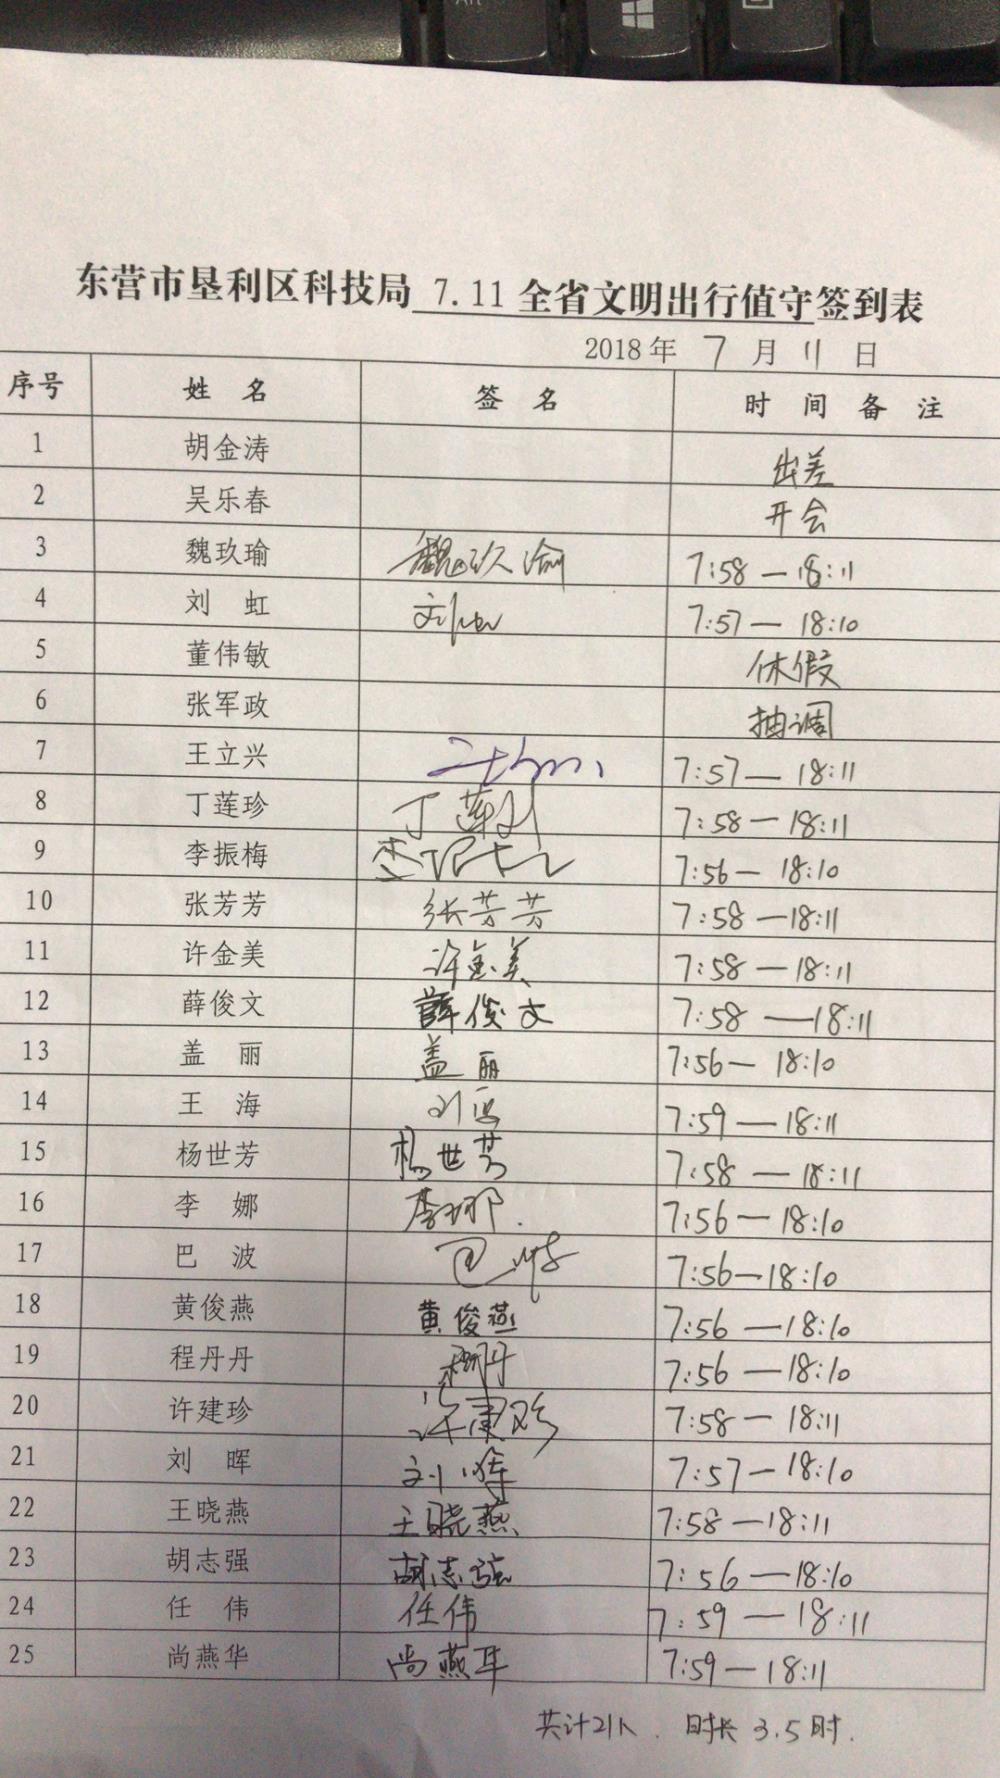 东营市垦利区科技局 7.11 全省文明出行值守签到表
2018 年 7 月 11 日
序号 姓 名 签 名 时 间 备 注
1 胡金涛 出差
2 吴乐春 开会
3 魏玖瑜 魏玖瑜 7:58 — 18:11
4 刘 虹 刘虹 7:57 — 18:10
5 董伟敏 休假
6 张军政 抽调
7 王立兴 7:57 — 18:11
8 丁莲珍 丁莲珍 7:58 — 18:11
9 李振梅 7:56 — 18:10
10 张芳芳 张芳芳 7:58 — 18:11
11 许金美 许金美 7:58 — 18:11
12 薛俊文 薛俊文 7:58 — 18:11
13 盖 丽 盖丽 7:56 — 18:10
14 王 海 7:59 — 18:11
15 杨世芳 杨世芳 7:58 — 18:11
16 李 娜 李娜. 7:56 — 18:10
17 巴 波 巴波 7:56 — 18:10
18 黄俊燕 黄俊燕 7:56 — 18:10
19 程丹丹 7:56 — 18:10
20 许建珍 许建珍 7:58 — 18:11
21 刘 晖 刘晖 7:57 — 18:10
22 王晓燕 王晓燕 7:58 — 18:11
23 胡志强 胡志强 7:56 — 18:10
24 任 伟 任伟 7:59 — 18:11
25 尚燕华 尚燕华 7:59 — 18:11
共计21人. 时长 3.5时.